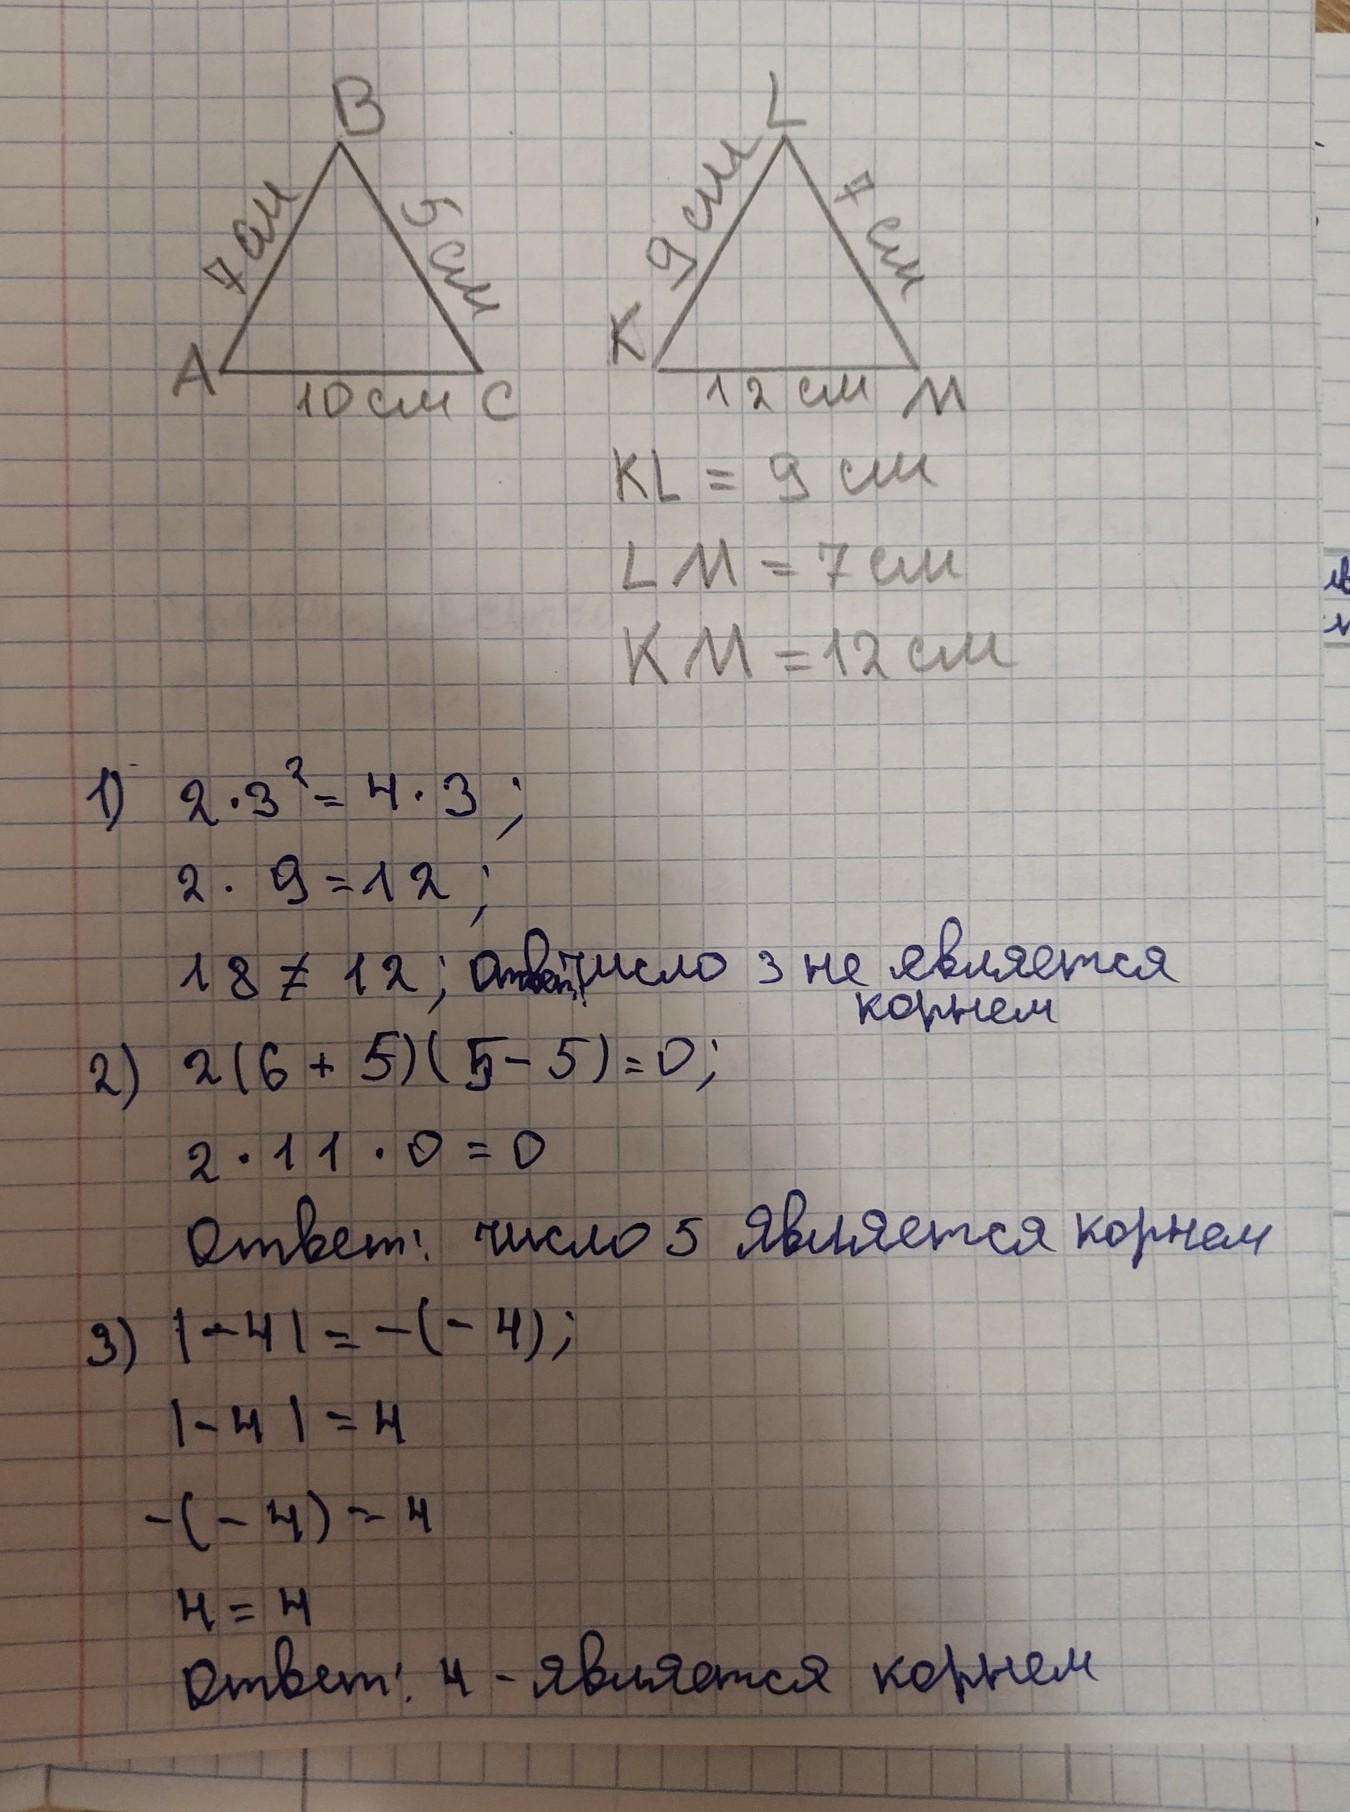 B
L
7 см
5 см
9 см
7 см
A
10 см C
K
12 см M
KL = 9 см
LM = 7 см
KM = 12 см
1) 2·3² = 4·3;
2·9 = 12;
18 ≠ 12; Ответ: число 3 не является
корнем
2) 2(6 + 5)(5 - 5) = 0;
2·11·0 = 0
Ответ: число 5 является корнем
3) |-4| = -(-4);
|-4| = 4
-(-4) = 4
4 = 4
Ответ: 4 - является корнем